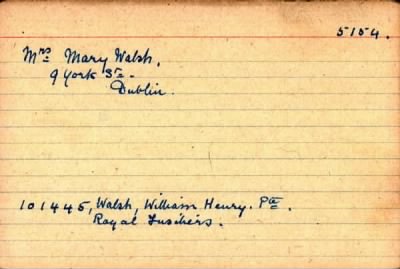 5154.
Mrs Mary Walsh,
9 York St.
Dublin.
101445, Walsh, William Henry. Pte.
Royal Fusiliers.